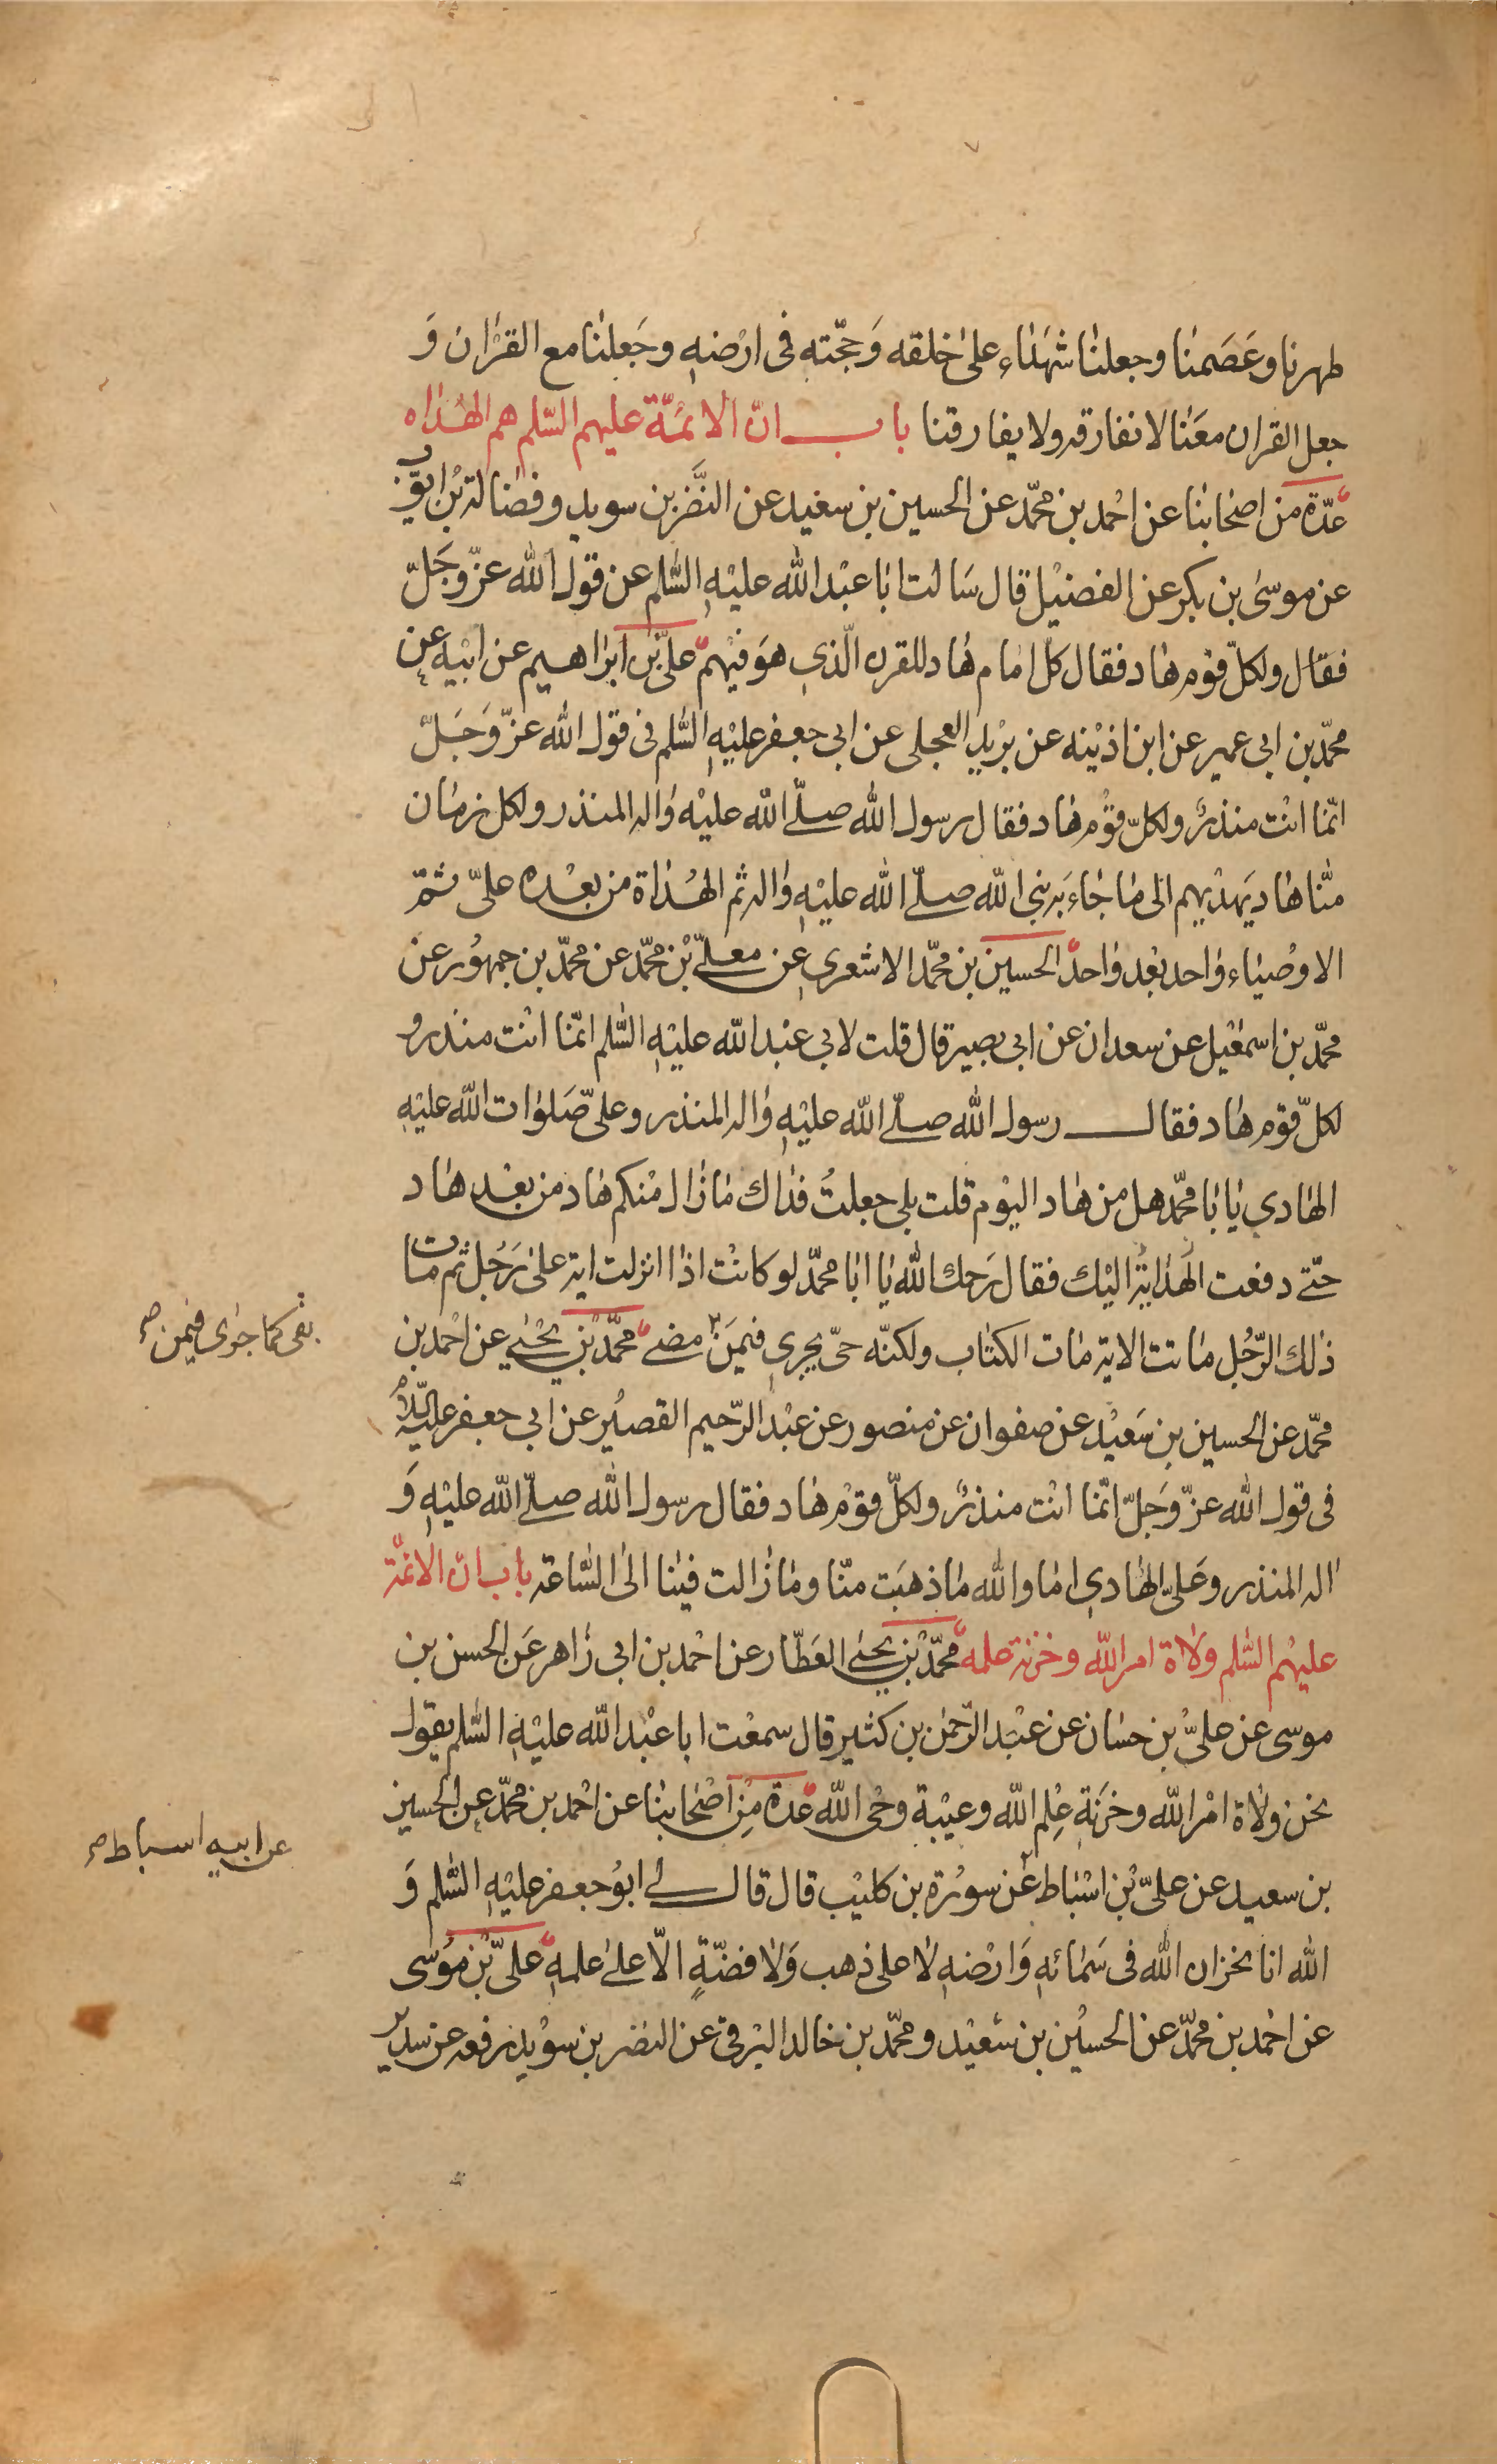 طهرنا وعَصَمنا وجعلنا شهَداء على خلقه وَحجّته فى ارْضهِ وجَعلنا مع القرْان وَ
جعل القران معَنا لا نفارقه ولا يفارقنا باب انّ الائمّة عليهم السّلم هم الهُداه
عدّة من اصحابنا عن احْمد بن محمّد عن الحسين بن سعْيد عن النَّضر بن سويد وفضالة بْن ايّوب
عن موسىٰ بن بكر عن الفضيْل قال سَالت ابا عبْد الله عليْهِ السّلم عن قول الله عزّ وجَلّ
فقال ولكلّ قوْم هاد فقال كلّ امام هاد للقرن الّذي هوَ فيْهم علىّ بن ابرٰاهيم عن ابيْه عن
محمّد بن ابى عمير عن ابن اذيْنه عن بريْد العجلى عن ابي جعفر عليْهِ السّلم فى قول الله عزّ وَجَلّ
انّما انْت منذرٌ ولكلّ قوْم هاد فقال رسول الله صلّى الله عليْه واٰله المنذر ولكل زمان
منّا هاد يَهديهم الى ما جٰاءَ به نبي الله صلّى الله عليْهِ واٰله ثم الهُدٰاة من بعْده علىّ ثمّ
الاوْصيٰاء وٰاحد بعْد وٰاحد الحسين بن محمّد الاشعرى عن معلّى بْن محمّد عن محمّد بن جمهُور عن
محمّد بن اسمعٰيل عن سعدان عن ابى بصير قال قلت لابي عبْد الله عليْهِ السّلم انّما انْت منذر و
لكلّ قوْم هٰاد فقال رسول الله صلّى الله عليْهِ واٰله المنذر وعلىّ صَلوٰات الله عليْهِ
الهٰادي يٰا بٰا محمّد هل من هٰاد اليوْم قلت بلى جعلتُ فدٰاك مٰا زٰال منْكم هٰاد من بعْد هٰاد
حتّى دفعت الهُدٰايَة اليْك فقال رَحمك الله يٰا ابٰا محمّد لو كانتْ اذٰا انزلت اية علىٰ رَجُل ثم مات
ذٰلك الرّجُل مٰاتت الاية مٰات الكتٰاب ولكنّه حىّ يجرى فيمَنْ مضى محمّد بْن يحيٰى عن احْمد بن
بقى كما جرٰى فيمن صح
محمّد عن الحسين بن سَعيْد عن صفوان عن منصور عن عبْد الرّحيم القصيْر عن ابي جعفر عليْهِ السّلام
فى قول الله عزّ وَجَلّ انّما انْت منذرٌ ولكلّ قوْم هٰاد فقال رسول الله صلّى الله عليْهِ وَ
اٰله المنذر وعَلىّ الهٰادي امٰا والله مٰا ذهبَت منّا ومٰا زٰالت فينٰا الىٰ السّٰاعة باب انّ الائمّة
عليهْم السّٰلم ولاٰة امر الله وخزنة علمه محمّد بْن يحيٰى العَطّٰار عن احْمد بن ابي زٰاهر عَن الحسن بن
موسى عن علىّ بْن حسٰان عن عبْد الرّحمن بن كثير قال سمعْت ابا عبْد الله عليْهِ السّٰلم يقول
نحن ولٰاة امْر الله وخزنَة عِلم الله وعيْبة وحْى الله عدة مِن اصْحٰابنٰا عن احْمد بن محمّد عن الحسين
بن سعيد عن علىّ بْن اسْبٰاط عن سوْرة بن كليْب قال قال لى ابوُ جعفر عليْهِ السّٰلم وَ
عن ابيه اسباط صح
الله انا لخزان الله فى سَمٰائهِ وَارْضهِ لا على ذهب وَلا فضّةٍ الّا علىٰ علمهِ علىّ بْن موُسى
عن احْمد بن محمّد عن الحسيْن بن سَعيْد ومحمّد بن خالد البرْقى عن النضر بن سوْيد رفعه عن سدير